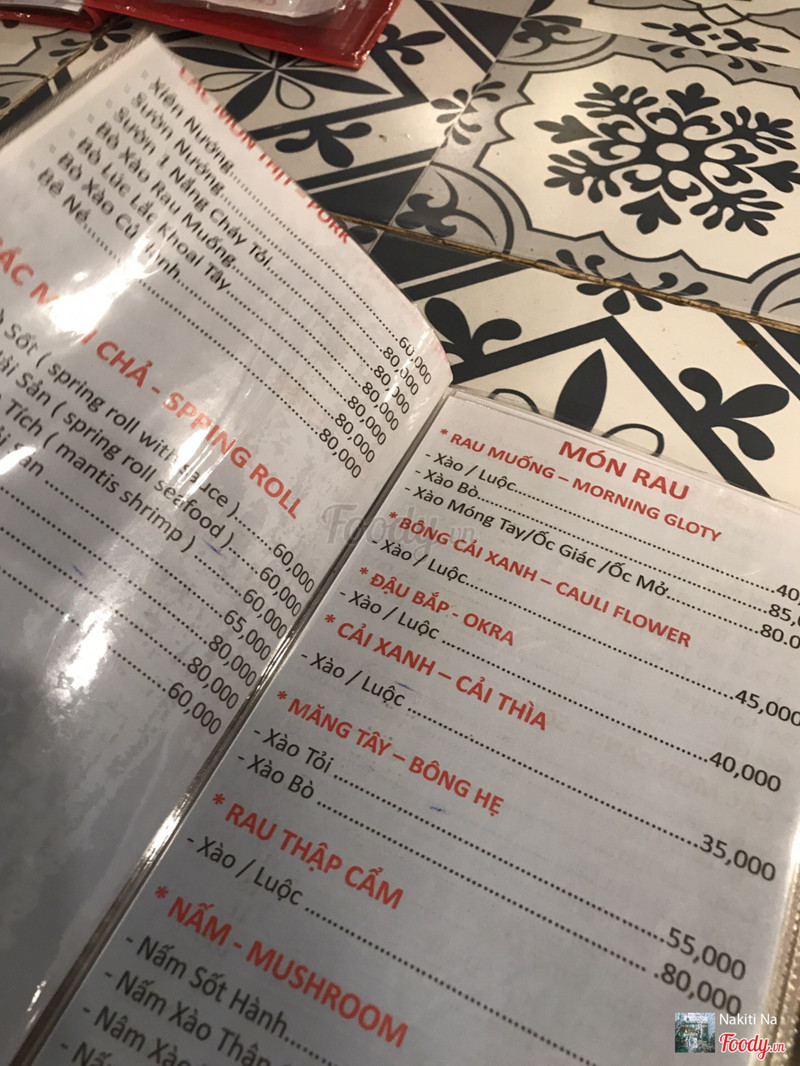 CÁC MÓN THỊT - PORK
Xiên Nướng 60,000
Sườn Nướng 80,000
Sườn 1 Nắng Cháy Tỏi 80,000
Bò Xào Rau Muống 80,000
Bò Lúc Lắc Khoai Tây 80,000
Bò Xào Củ 80,000
Bê Né 80,000
CHẢ - SPPING ROLL
Sốt ( spring roll with sauce ) 60,000
Sản ( spring roll seefood ) 60,000
Tích ( mantis shrimp ) 60,000
65,000
80,000
80,000
60,000
MÓN RAU
* RAU MUỐNG – MORNING GLOTY
- Xào / Luộc 40
- Xào Bò 85,0
- Xào Móng Tay/Ốc Giác /Ốc Mỡ 80,0
* BÔNG CẢI XANH – CAULI FLOWER
- Xào / Luộc 45,000
* ĐẬU BẮP - OKRA
- Xào / Luộc 40,000
* CẢI XANH – CẢI THÌA
- Xào / Luộc 35,000
* MĂNG TÂY – BÔNG HẸ
- Xào Tỏi 55,000
- Xào Bò 80,000
* RAU THẬP CẨM
- Xào / Luộc
* NẤM - MUSHROOM
- Nấm Sốt Hành
- Nấm Xào Thập
- Nâm Xào
- Nấm
Foody.vn
Nakiti Na
Foody.vn